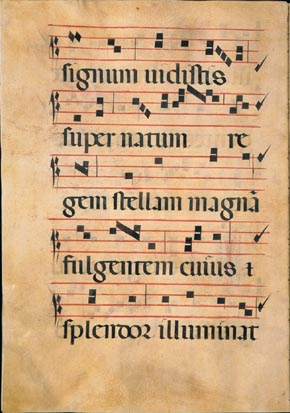 signum uidistis
super natum re
gem stellam magnã
fulgentem cuius ⁊
splendor illuminat